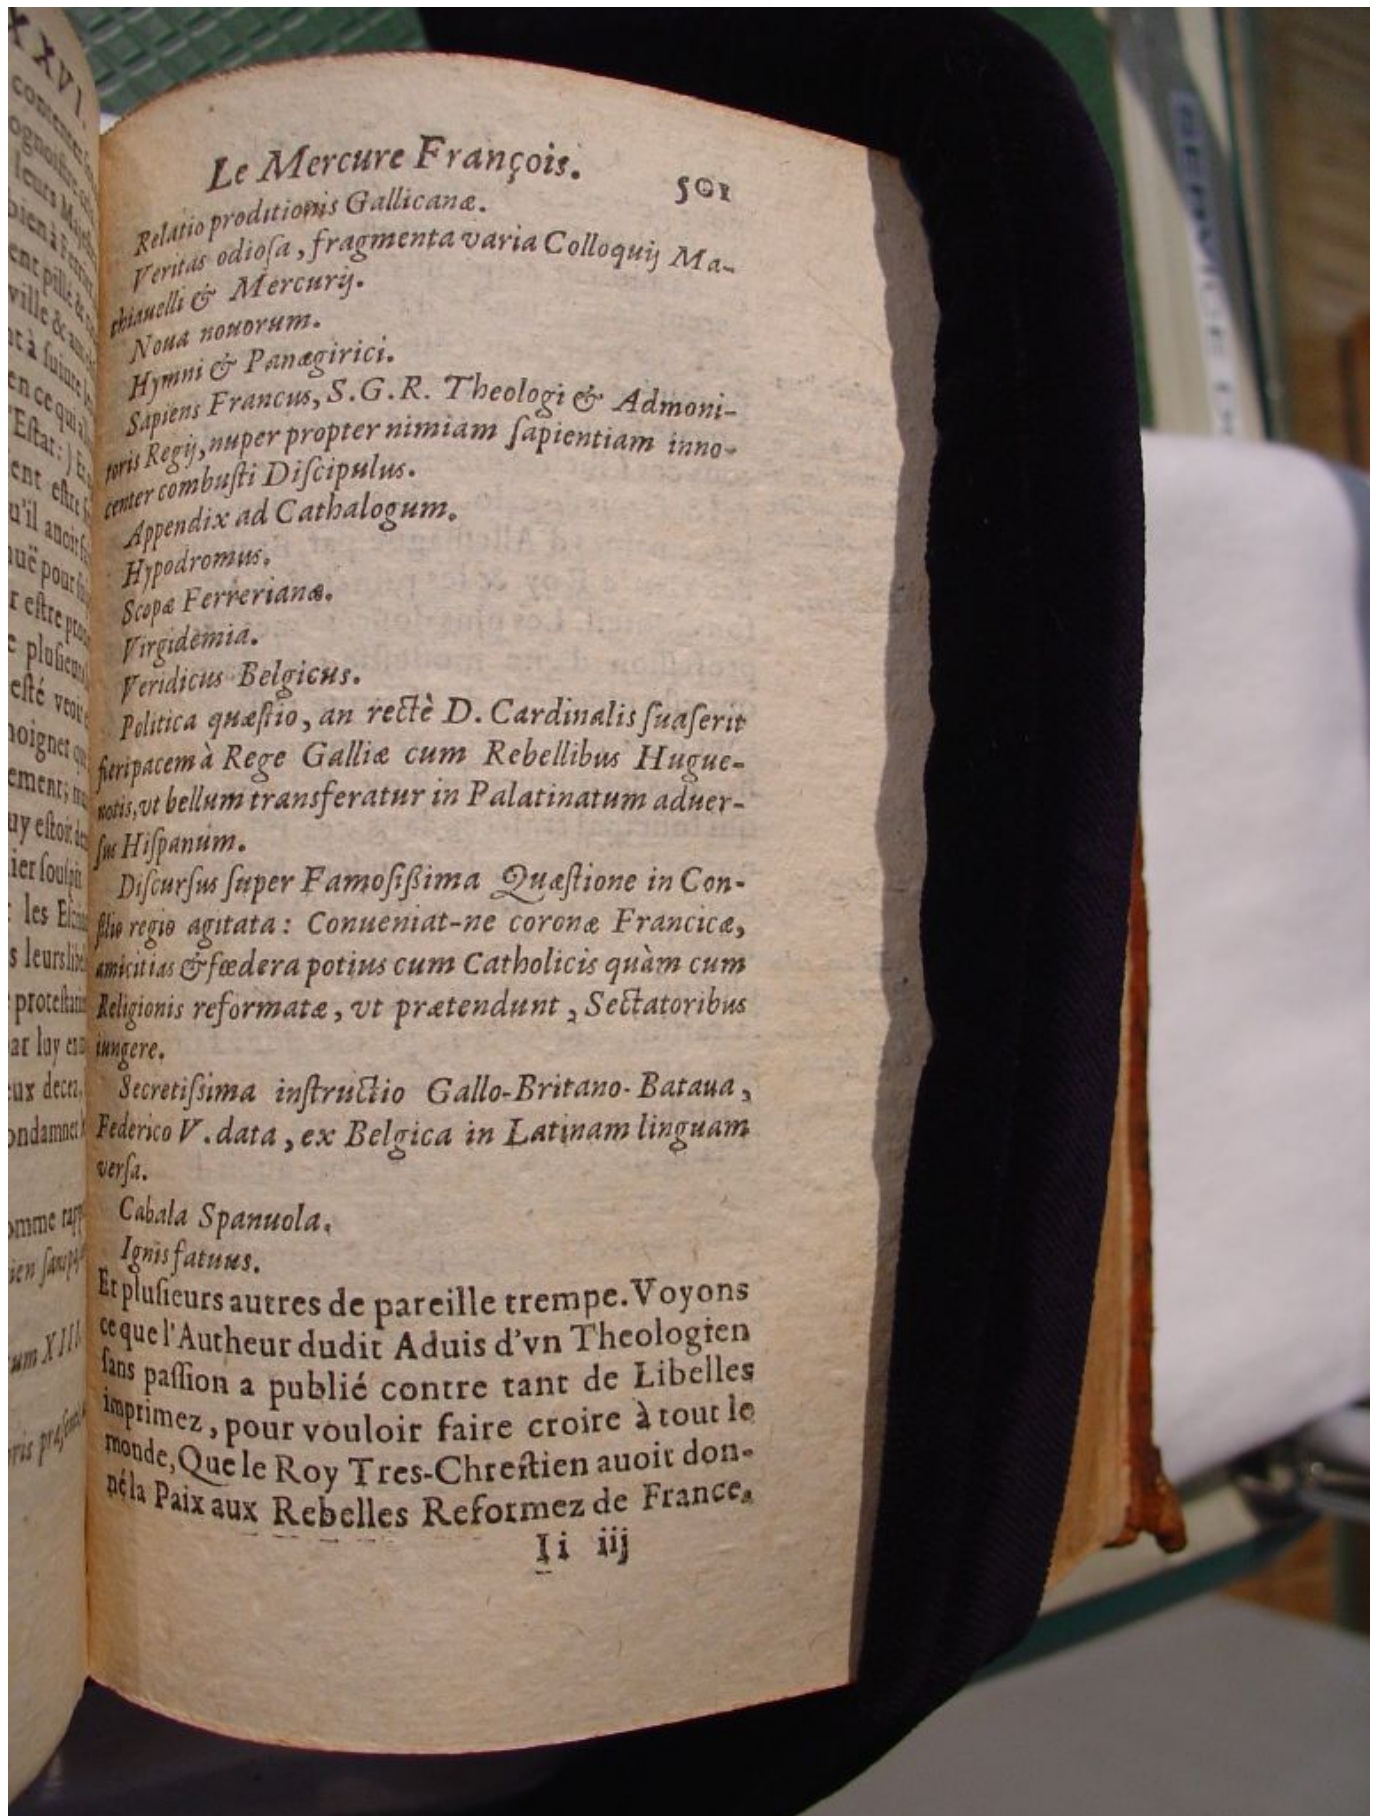 Le Mercure François. 501
Relatio proditionis Gallicanæ.
Veritas odiosa, fragmenta varia Colloquij Ma-
thiauelli & Mercurij.
Noua nouorum.
Hymni & Panægirici.
Sapiens Francus, S.G.R. Theologi & Admoni-
toris Regij, nuper propter nimiam sapientiam inno-
center combusti Discipulus.
Appendix ad Cathalogum.
Hypodromus.
Scopæ Ferrerianæ.
Virgidemia.
Veridicus Belgicus.
Politica quæstio, an rectè D. Cardinalis suaserit
fieri pacem à Rege Galliæ cum Rebellibus Hugue-
notis, vt bellum transferatur in Palatinatum aduer-
sus Hispanum.
Discursus super Famosißima Quæstione in Con-
silio regio agitata: Conueniat-ne coronæ Francicæ,
amicitias & fœdera potius cum Catholicis quàm cum
Religionis reformatæ, vt prætendunt, Sectatoribus
iungere.
Secretissima instructio Gallo-Britano-Bataua,
Federico V. data, ex Belgica in Latinam linguam
versa.
Cabala Spanuola.
Ignis fatuus.
Et plusieurs autres de pareille trempe. Voyons
ce que l'Autheur dudit Aduis d'vn Theologien
sans passion a publié contre tant de Libelles
imprimez, pour vouloir faire croire à tout le
monde, Que le Roy Tres-Chrestien auoit don-
né la Paix aux Rebelles Reformez de France,
Ii iij